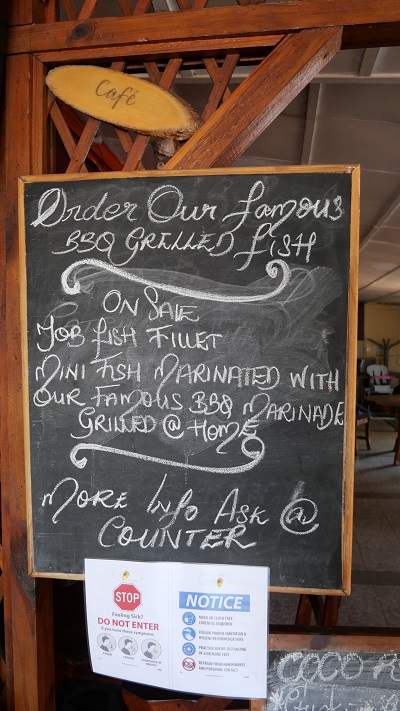 Café
Order Our Famous
BBQ GRILLED FISH
ON SALE
JOB FISH FILLET
MINI FISH MARINATED WITH
OUR FAMOUS BBQ MARINADE
GRILLED @ HOME
MORE INFO ASK @
COUNTER
STOP
Feeling Sick?
DO NOT ENTER
if you have these symptoms
NOTICE
COCO